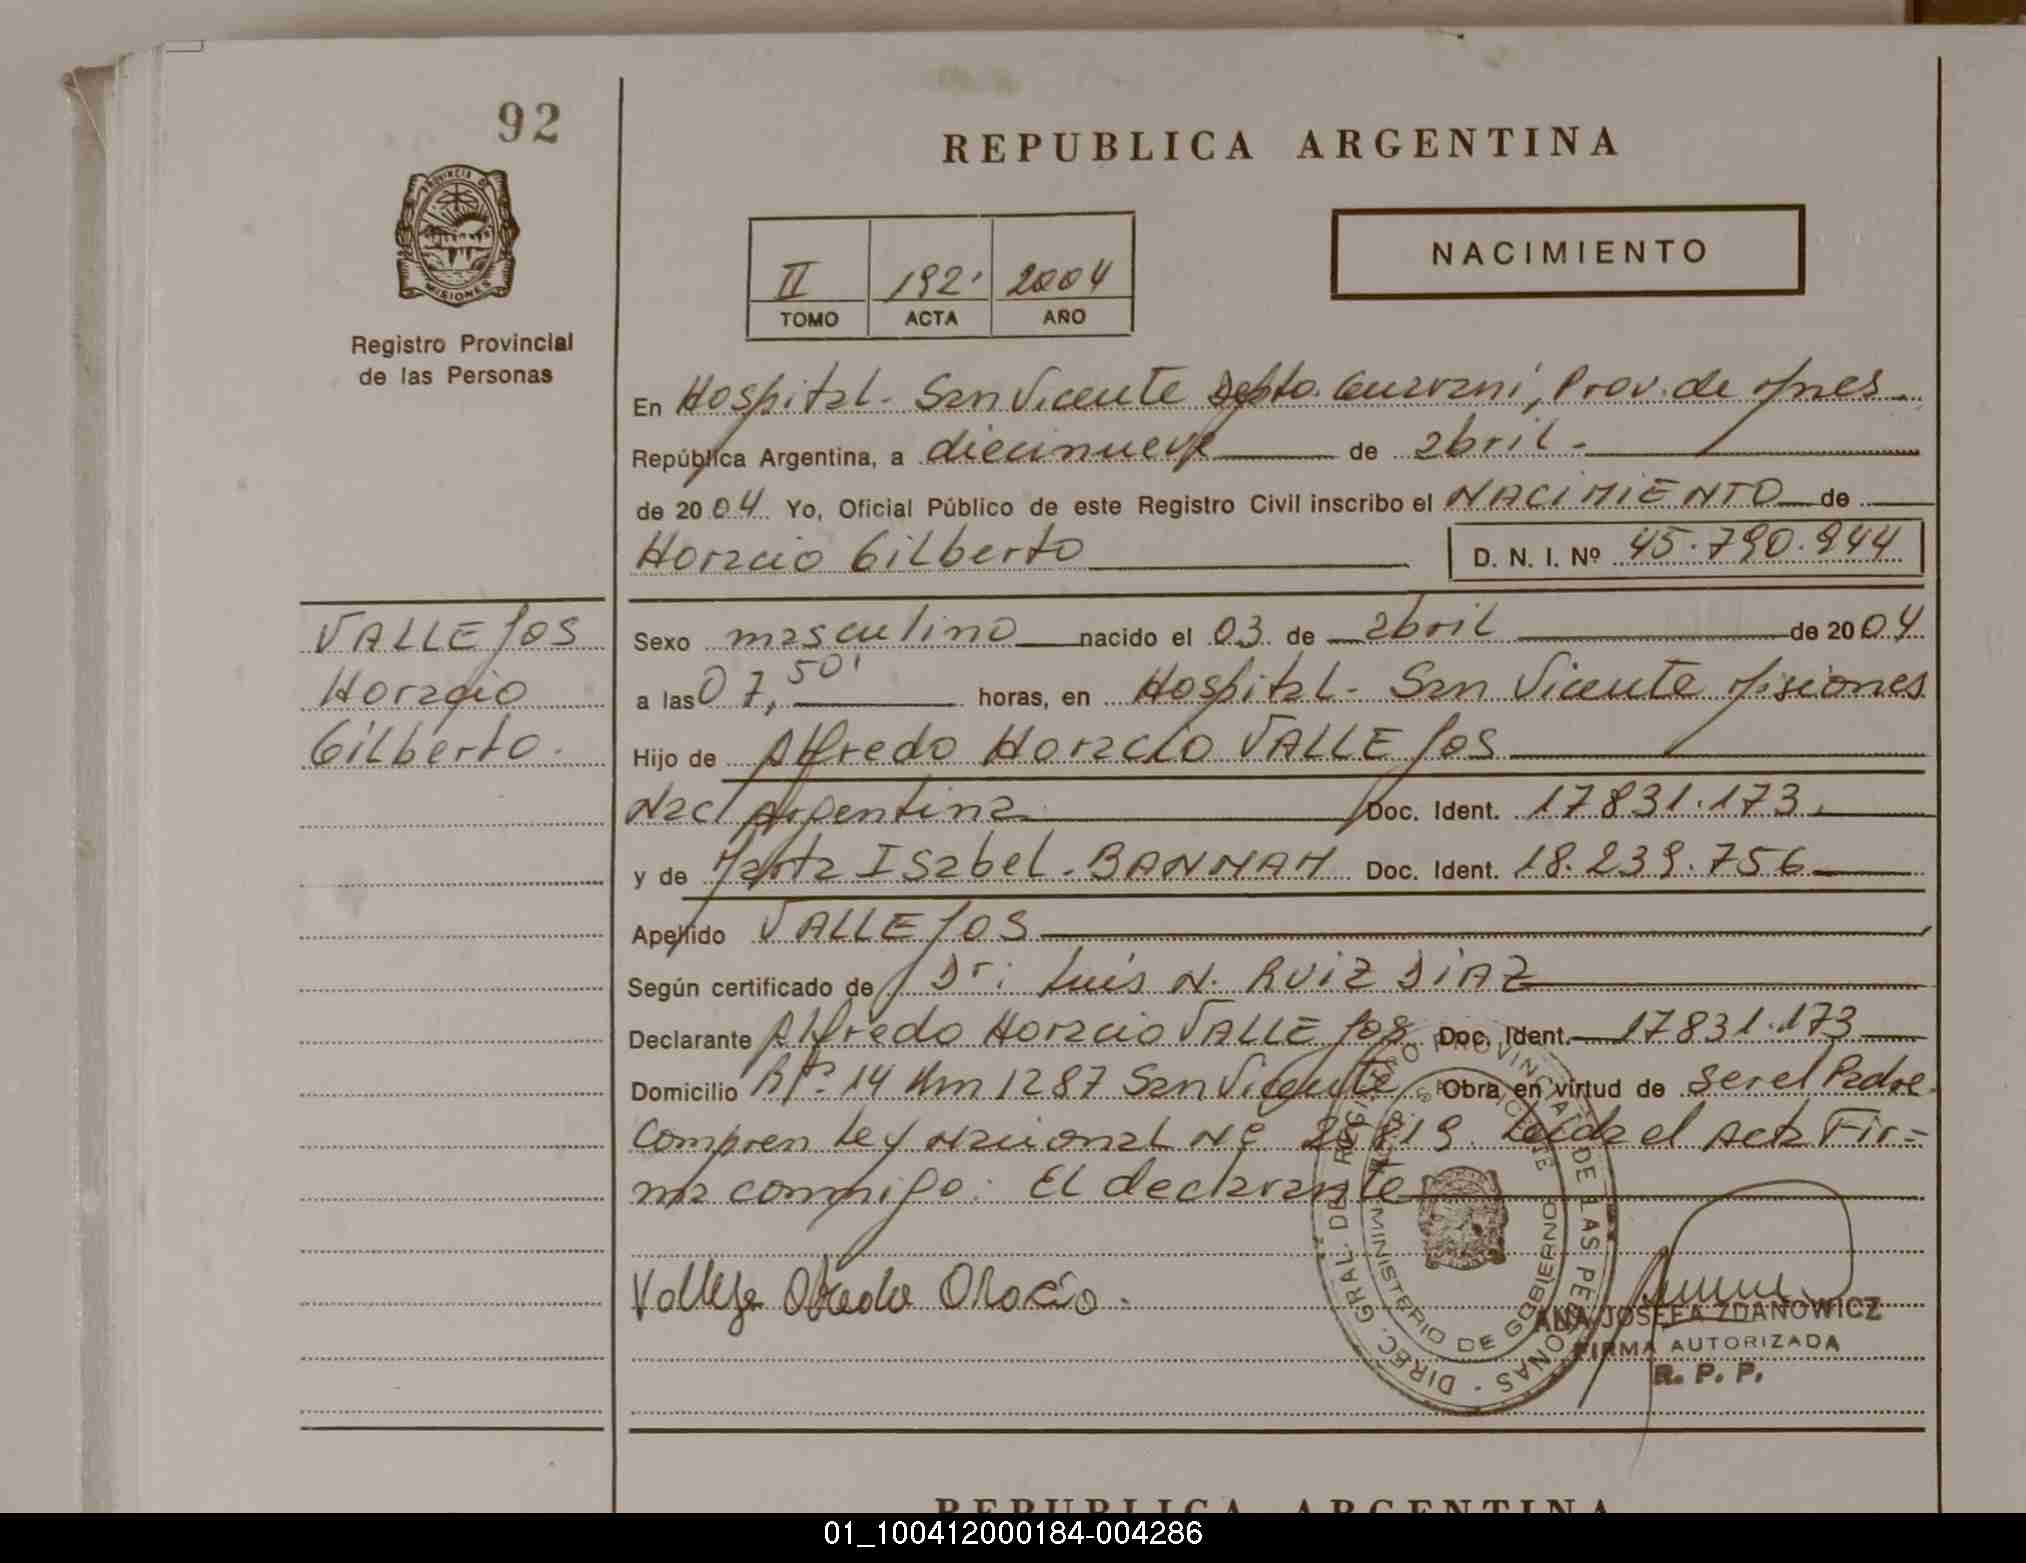 92
REPUBLICA ARGENTINA
PROVINCIA DE MISIONES
Registro Provincial
de las Personas
NACIMIENTO
II 192 2004
TOMO ACTA AÑO
En Hospital - San Vicente Depto. Guarani, Prov. de Mnes
República Argentina, a diecinueve de abril -
de 2004 Yo, Oficial Público de este Registro Civil inscribo el NACIMIENTO de
Horacio Gilberto D. N. I. Nº 45.790.944
VALLEJOS
Horacio
Gilberto.
Sexo masculino nacido el 03 de abril de 2004
a las 07,50' horas, en Hospital - San Vicente Misiones
Hijo de Alfredo Horacio VALLEJOS
Nac. Argentina Doc. Ident. 17831.173
y de Marta Isabel - Doc. Ident. 18.239.756
Apellido VALLEJOS
Según certificado de Dr. Luis N. RUIZ DIAZ
Declarante Alfredo Horacio VALLEJOS Doc. Ident. 17831.173
Domicilio Rta. 14 Km 1287 San Vicente Obra en virtud de ser el Padre
Compren Ley Nacional Nº Leida el acta Fir=
ma conmigo: El declarante
Orocio.
DIREC. GRAL. DEL REGISTRO PROVINCIAL DE LAS PERSONAS
MINISTERIO DE GOBIERNO
SAN VICENTE
ANA JOSEFA ZDANOWICZ
FIRMA AUTORIZADA
R. P. P.
REPUBLICA ARGENTINA
01_100412000184-004286